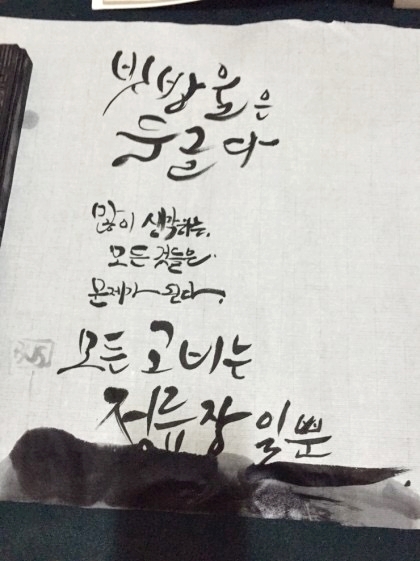 빗방울은
둥글다
많이 생각하는,
모든 것들은
문제가 된다.
모든 고비는
정류장일뿐